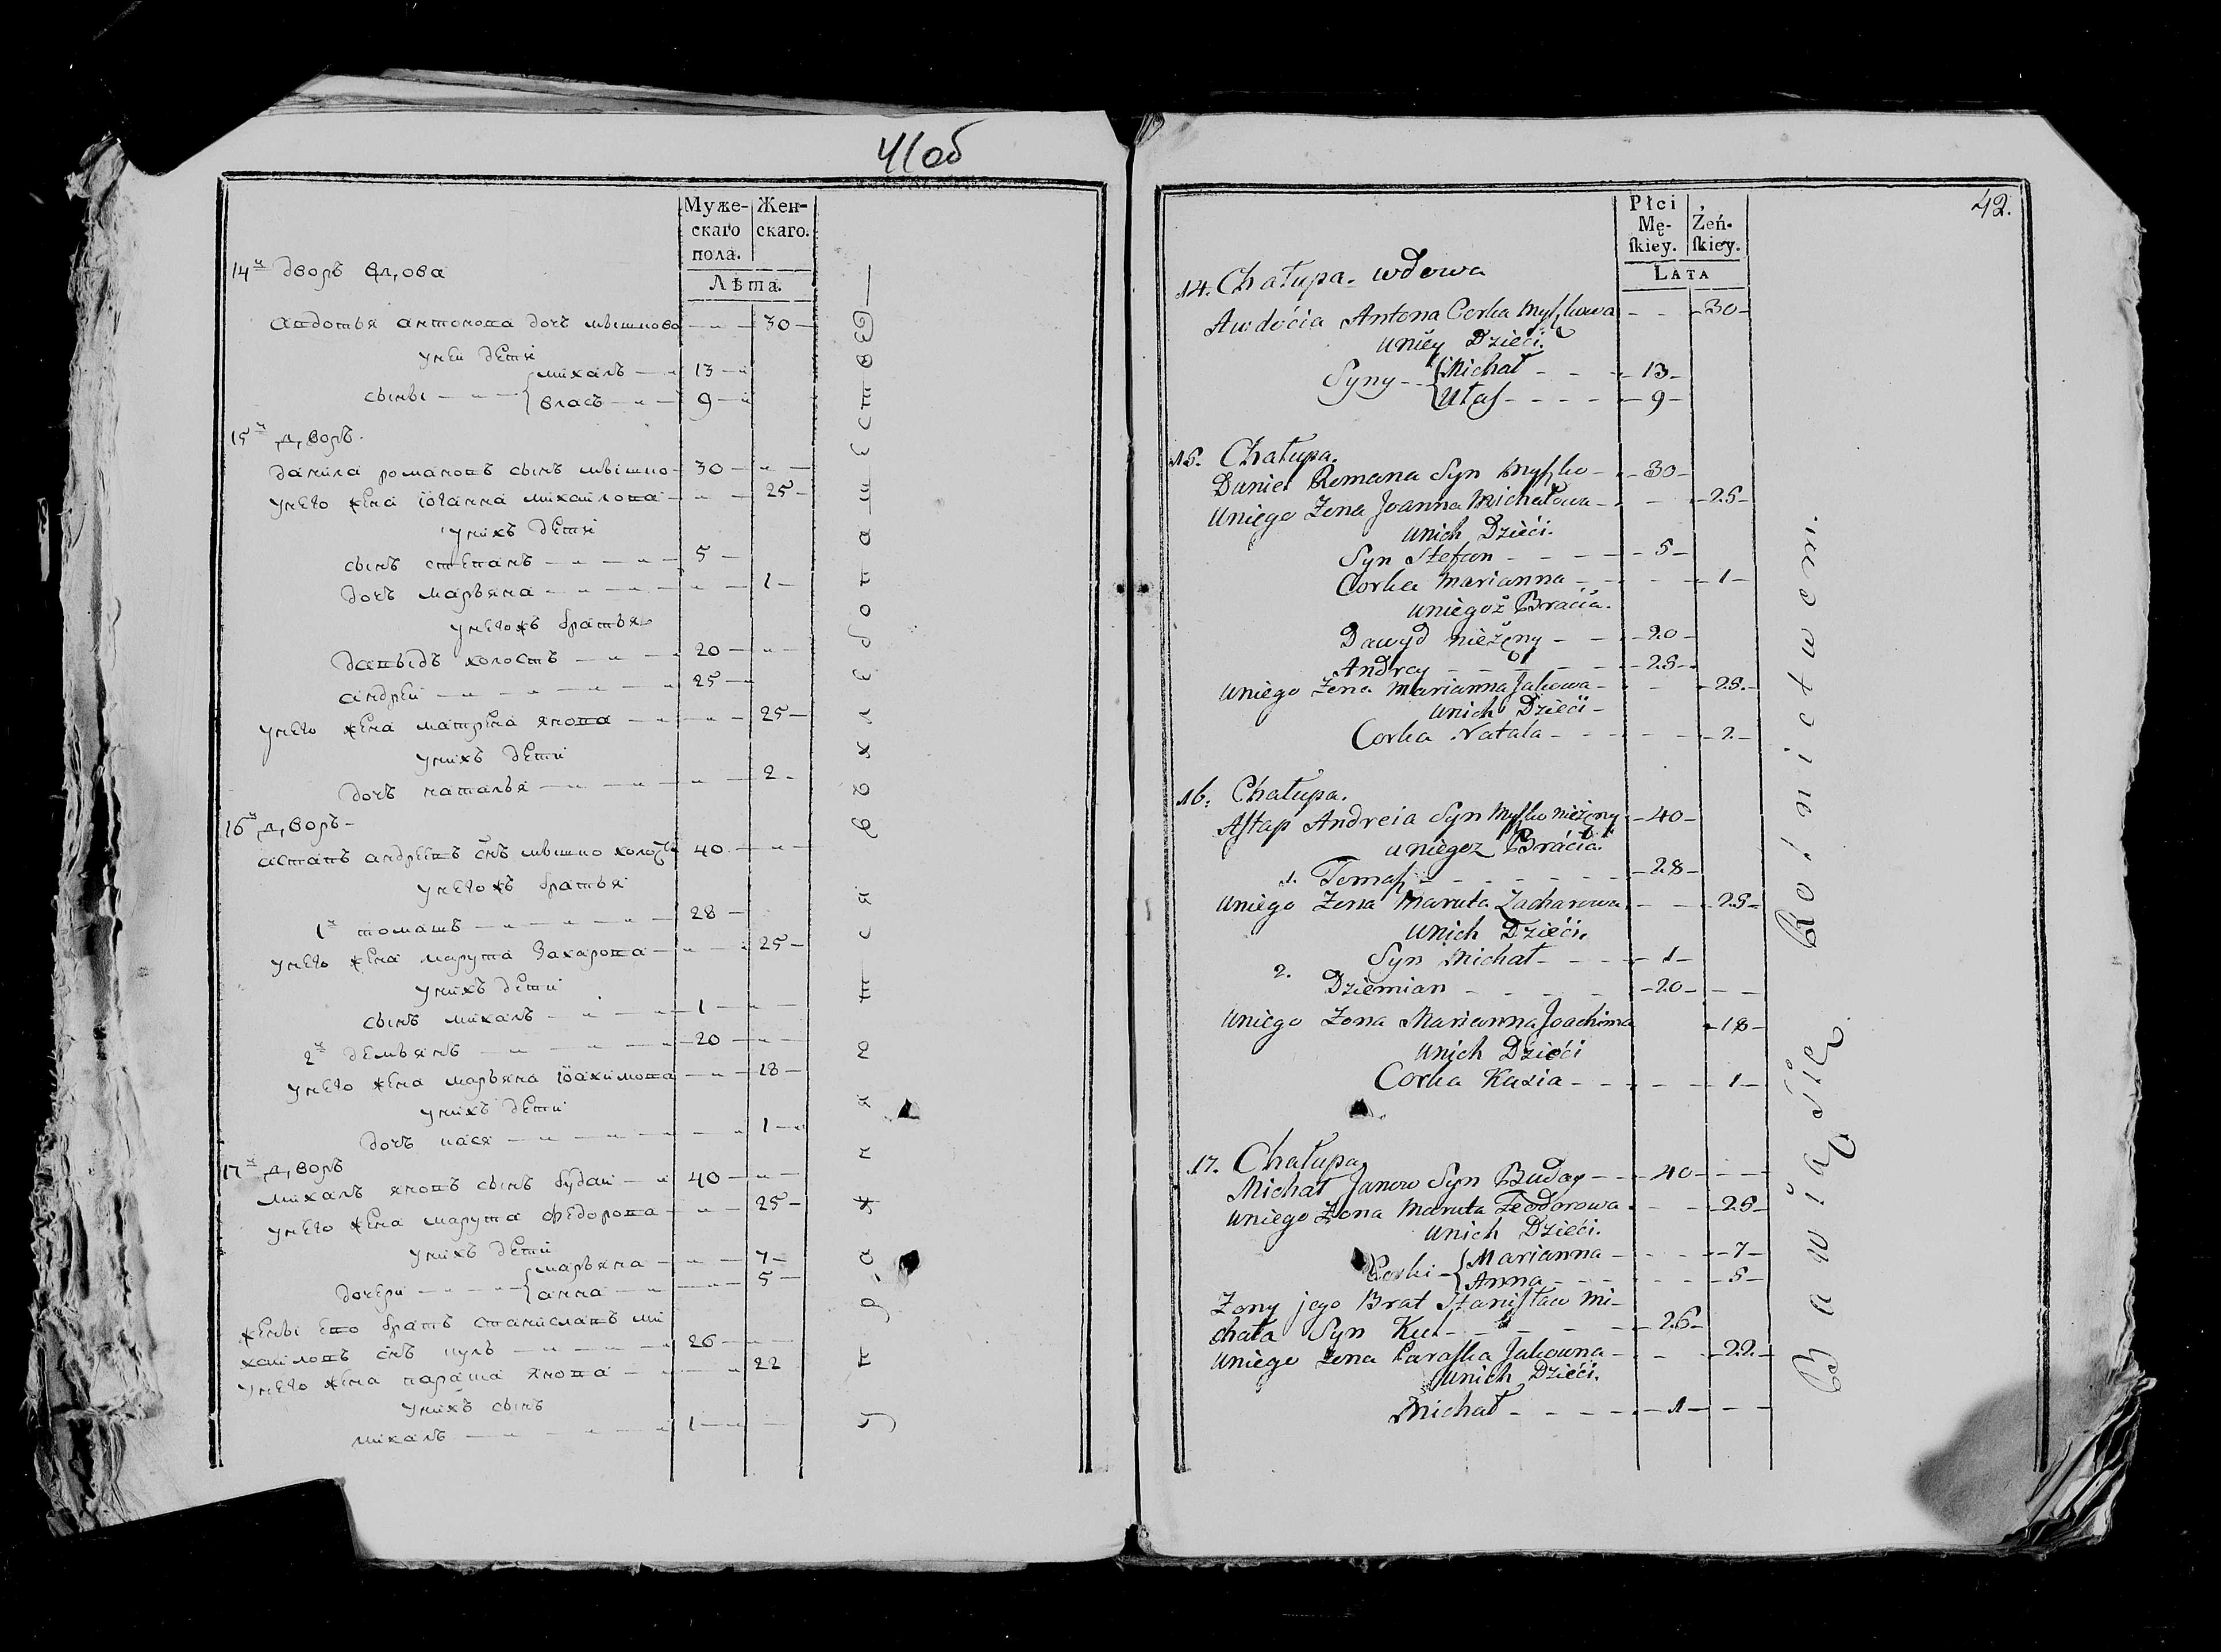 41об
Муже-
скаго
пола.
Жен-
скаго.
Лѣта.
14й дворъ вдова
авдотья антонова дочь мышкова — 30 —
унеи дети
сыны { михалъ — 13 —
власъ — 9 —
15й дворъ
данила романовъ сынъ мышко — 30 —
унего жена іоганна михаилова — 25 —
унихъ дети
сынъ степанъ — 5 —
дочь марьяна — 1 —
унегожъ братья
давыдъ холостъ — 20 —
андреи — 25 —
унего жена матрена якова — 25 —
унихъ дети
дочь наталья — 2 —
16й дворъ —
астапъ андреевъ снъ мышко холостъ 40 —
унегожъ братья
1й томашъ — 28 —
унего жена марута захарова — 25 —
унихъ дети
сынъ михалъ — 1 —
2й демьянъ — 20 —
унего жена марьяна іоахимова — 18 —
унихъ дети
дочь кася — 1 —
17й дворъ
михалъ яновъ сынъ будаи — 40 —
унего жена марута федорова — 25 —
унихъ дети
дочери — { марьяна — 7 —
анна — 5 —
жены его братъ станиславъ ми
хаиловъ снъ куль — 26 —
унего жена параша якова — 22
унихъ сынъ
михалъ — 1 —
упражняется въ хлебопашестве —
42.
Płci
Mę-
skiey.
Żeń-
skiey.
LATA
14. Chałupa. wdowa
Awdocia Antona Corka Myszkowa - - 30 -
uniey Dzieci.
Syny - - { Michał - - 13 -
Ułas - - - - 9 -
15. Chałupa.
Daniel Romana Syn Myszko - - 30 -
uniego Żona Joanna Michałowa - - 25 -
unich Dzieci.
Syn Stefan - - - - 5 -
Corka Marianna - - - 1 -
uniegoż Bracia.
Dawyd nieżęny - - 20 -
Andrey - - - - - 25 -
uniego Żena Marianna Jakowa - - 25 -
unich Dzieci -
Corka Natala - - - - 2 -
16. Chałupa.
Astap Andreia Syn Myszko nieżęny - 40 -
uniegoż Bracia.
1. Tomasz - - - - - - 28 -
uniego Żona Maruta Zacharowa - - 25 -
unich Dzieci.
Syn Michał - - - - 1 -
2. Dziemian - - - - - 20 -
uniego Żona Marianna Joachima - 18 -
unich Dzieci
Corka Kasia - - - - 1 -
17. Chałupa
Michał Janow Syn Buday - - 40 -
uniego Żona Maruta Feodorowa - - 25 -
unich Dzieci.
Corki - { Marianna - - - 7 -
Anna - - - - - 5 -
Żony jego Brat Stanisław Mi-
chała Syn Kul - - - - - 26 -
uniego Żona Paraska Jakowna - - 22 -
unich Dzieci.
Michał - - - - 1 - - -
Bawią się Rolnictwem.